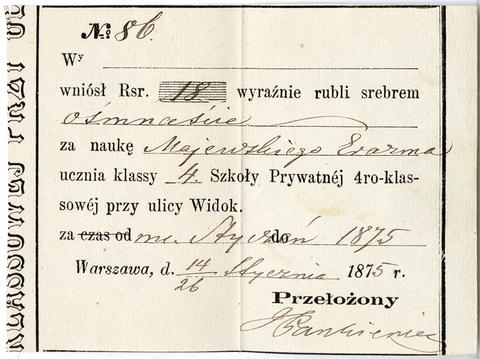 № 86.
Wy
wniósł Rsr. 18 wyraźnie rubli srebrem
ośmnaście
za naukę Majewskiego Erazma
ucznia klassy 4. Szkoły Prywatnéj 4ro-klas-
sowéj przy ulicy Widok.
za czas od mc. Styczeń do 1875
Warszawa, d. 14/26 Stycznia 1875 r.
Przełożony